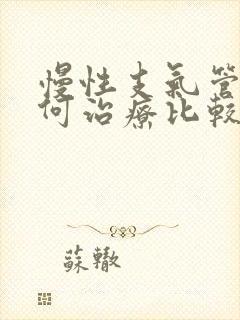 慢性支氣管
何治療比較
蘇轍